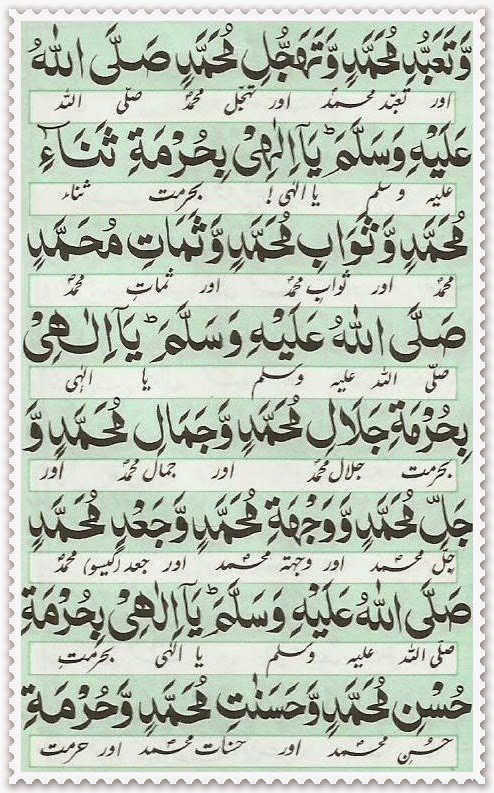 وَّتَعَبُّدِ مُحَمَّدٍ وَّتَهَجُّلِ مُحَمَّدٍ صَلَّى اللهُ
اور تعبّد محمدؐ اور تہجّل محمدؐ صلّی اللہ
عَلَيْهِ وَسَلَّمَ ؕ يَآ اِلٰهِىْ بِحُرْمَةِ ثَنَآءِ
علیہ وسلم یا الٰہی! بحرمت ثناء
مُحَمَّدٍ وَّثَوَابِ مُحَمَّدٍ وَّثَمَاتِ مُحَمَّدٍ
محمدؐ اور ثواب محمدؐ اور ثمات محمدؐ
صَلَّى اللهُ عَلَيْهِ وَسَلَّمَ ؕ يَآ اِلٰهِىْ
صلّی اللہ علیہ وسلم یا الٰہی
بِحُرْمَةِ جَلَالِ مُحَمَّدٍ وَّجَمَالِ مُحَمَّدٍ وَّ
بحرمت جلال محمدؐ اور جمال محمدؐ اور
جَلِّ مُحَمَّدٍ وَّوَجْهَةِ مُحَمَّدٍ وَّجَعْدِ مُحَمَّدٍ
جلّ محمدؐ اور وجہتہ محمدؐ اور جعد (گیسو) محمدؐ
صَلَّى اللهُ عَلَيْهِ وَسَلَّمَ ؕ يَآ اِلٰهِىْ بِحُرْمَةِ
صلّی اللہ علیہ وسلم یا الٰہی بحرمتِ
حُسْنِ مُحَمَّدٍ وَّحَسَنٰتِ مُحَمَّدٍ وَّحُرْمَةِ
حُسنِ محمدؐ اور حسنات محمدؐ اور حرمت